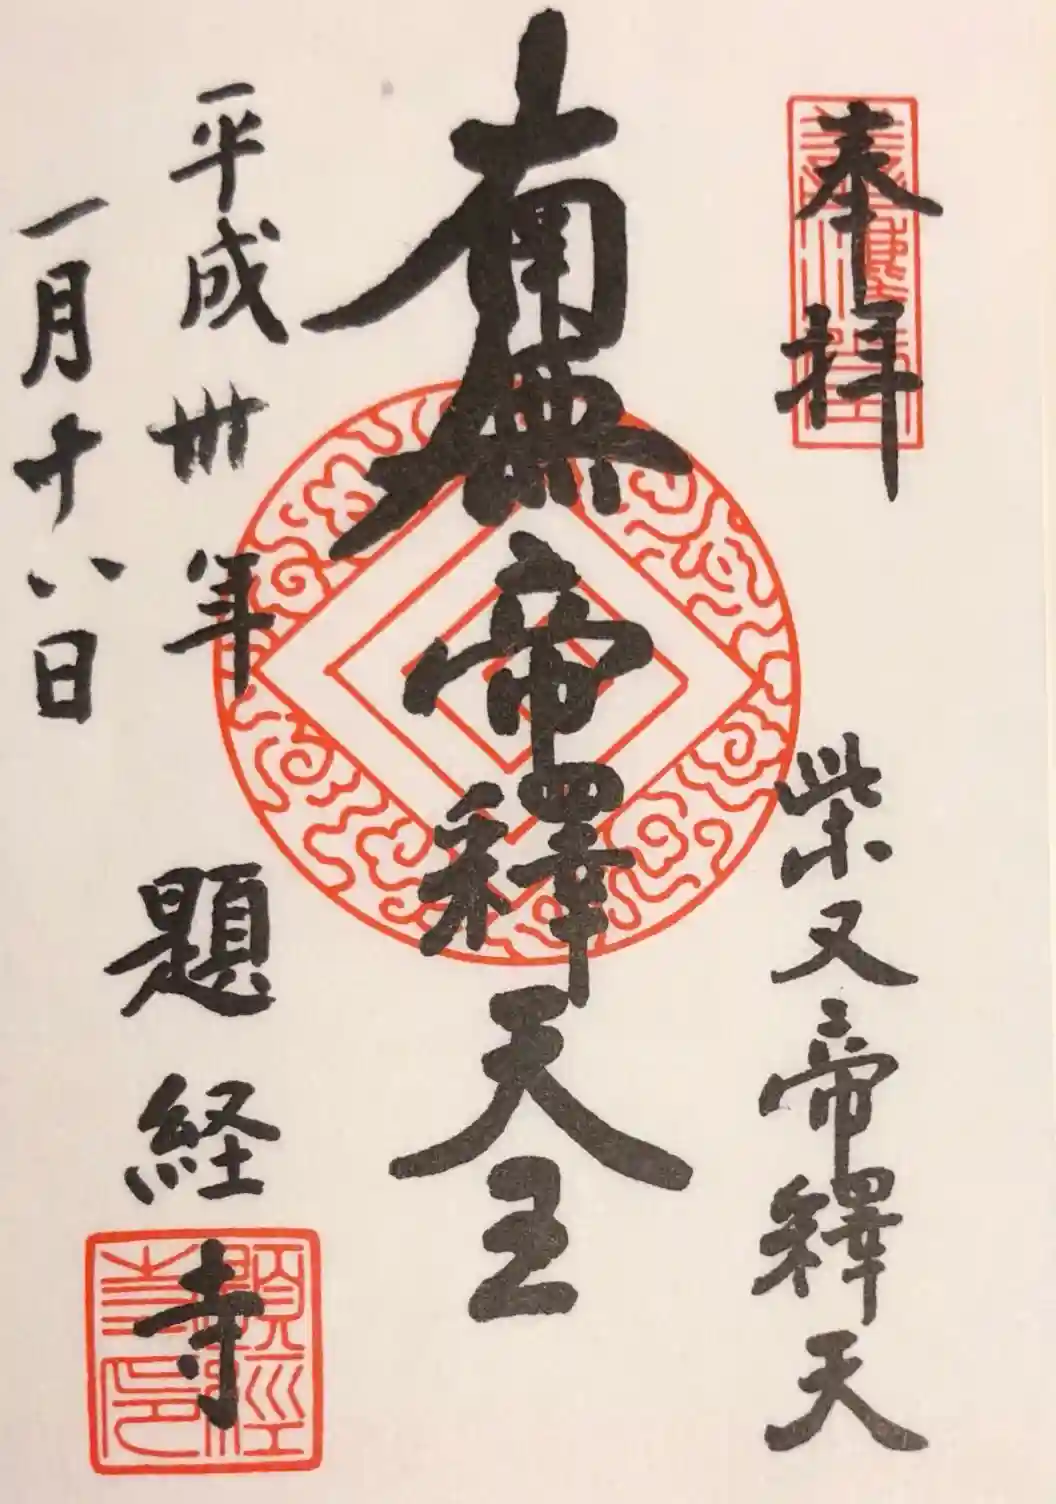 奉拝
柴又帝釋天
南無帝釋天王
平成卅年
一月十八日
題経寺
題經寺印